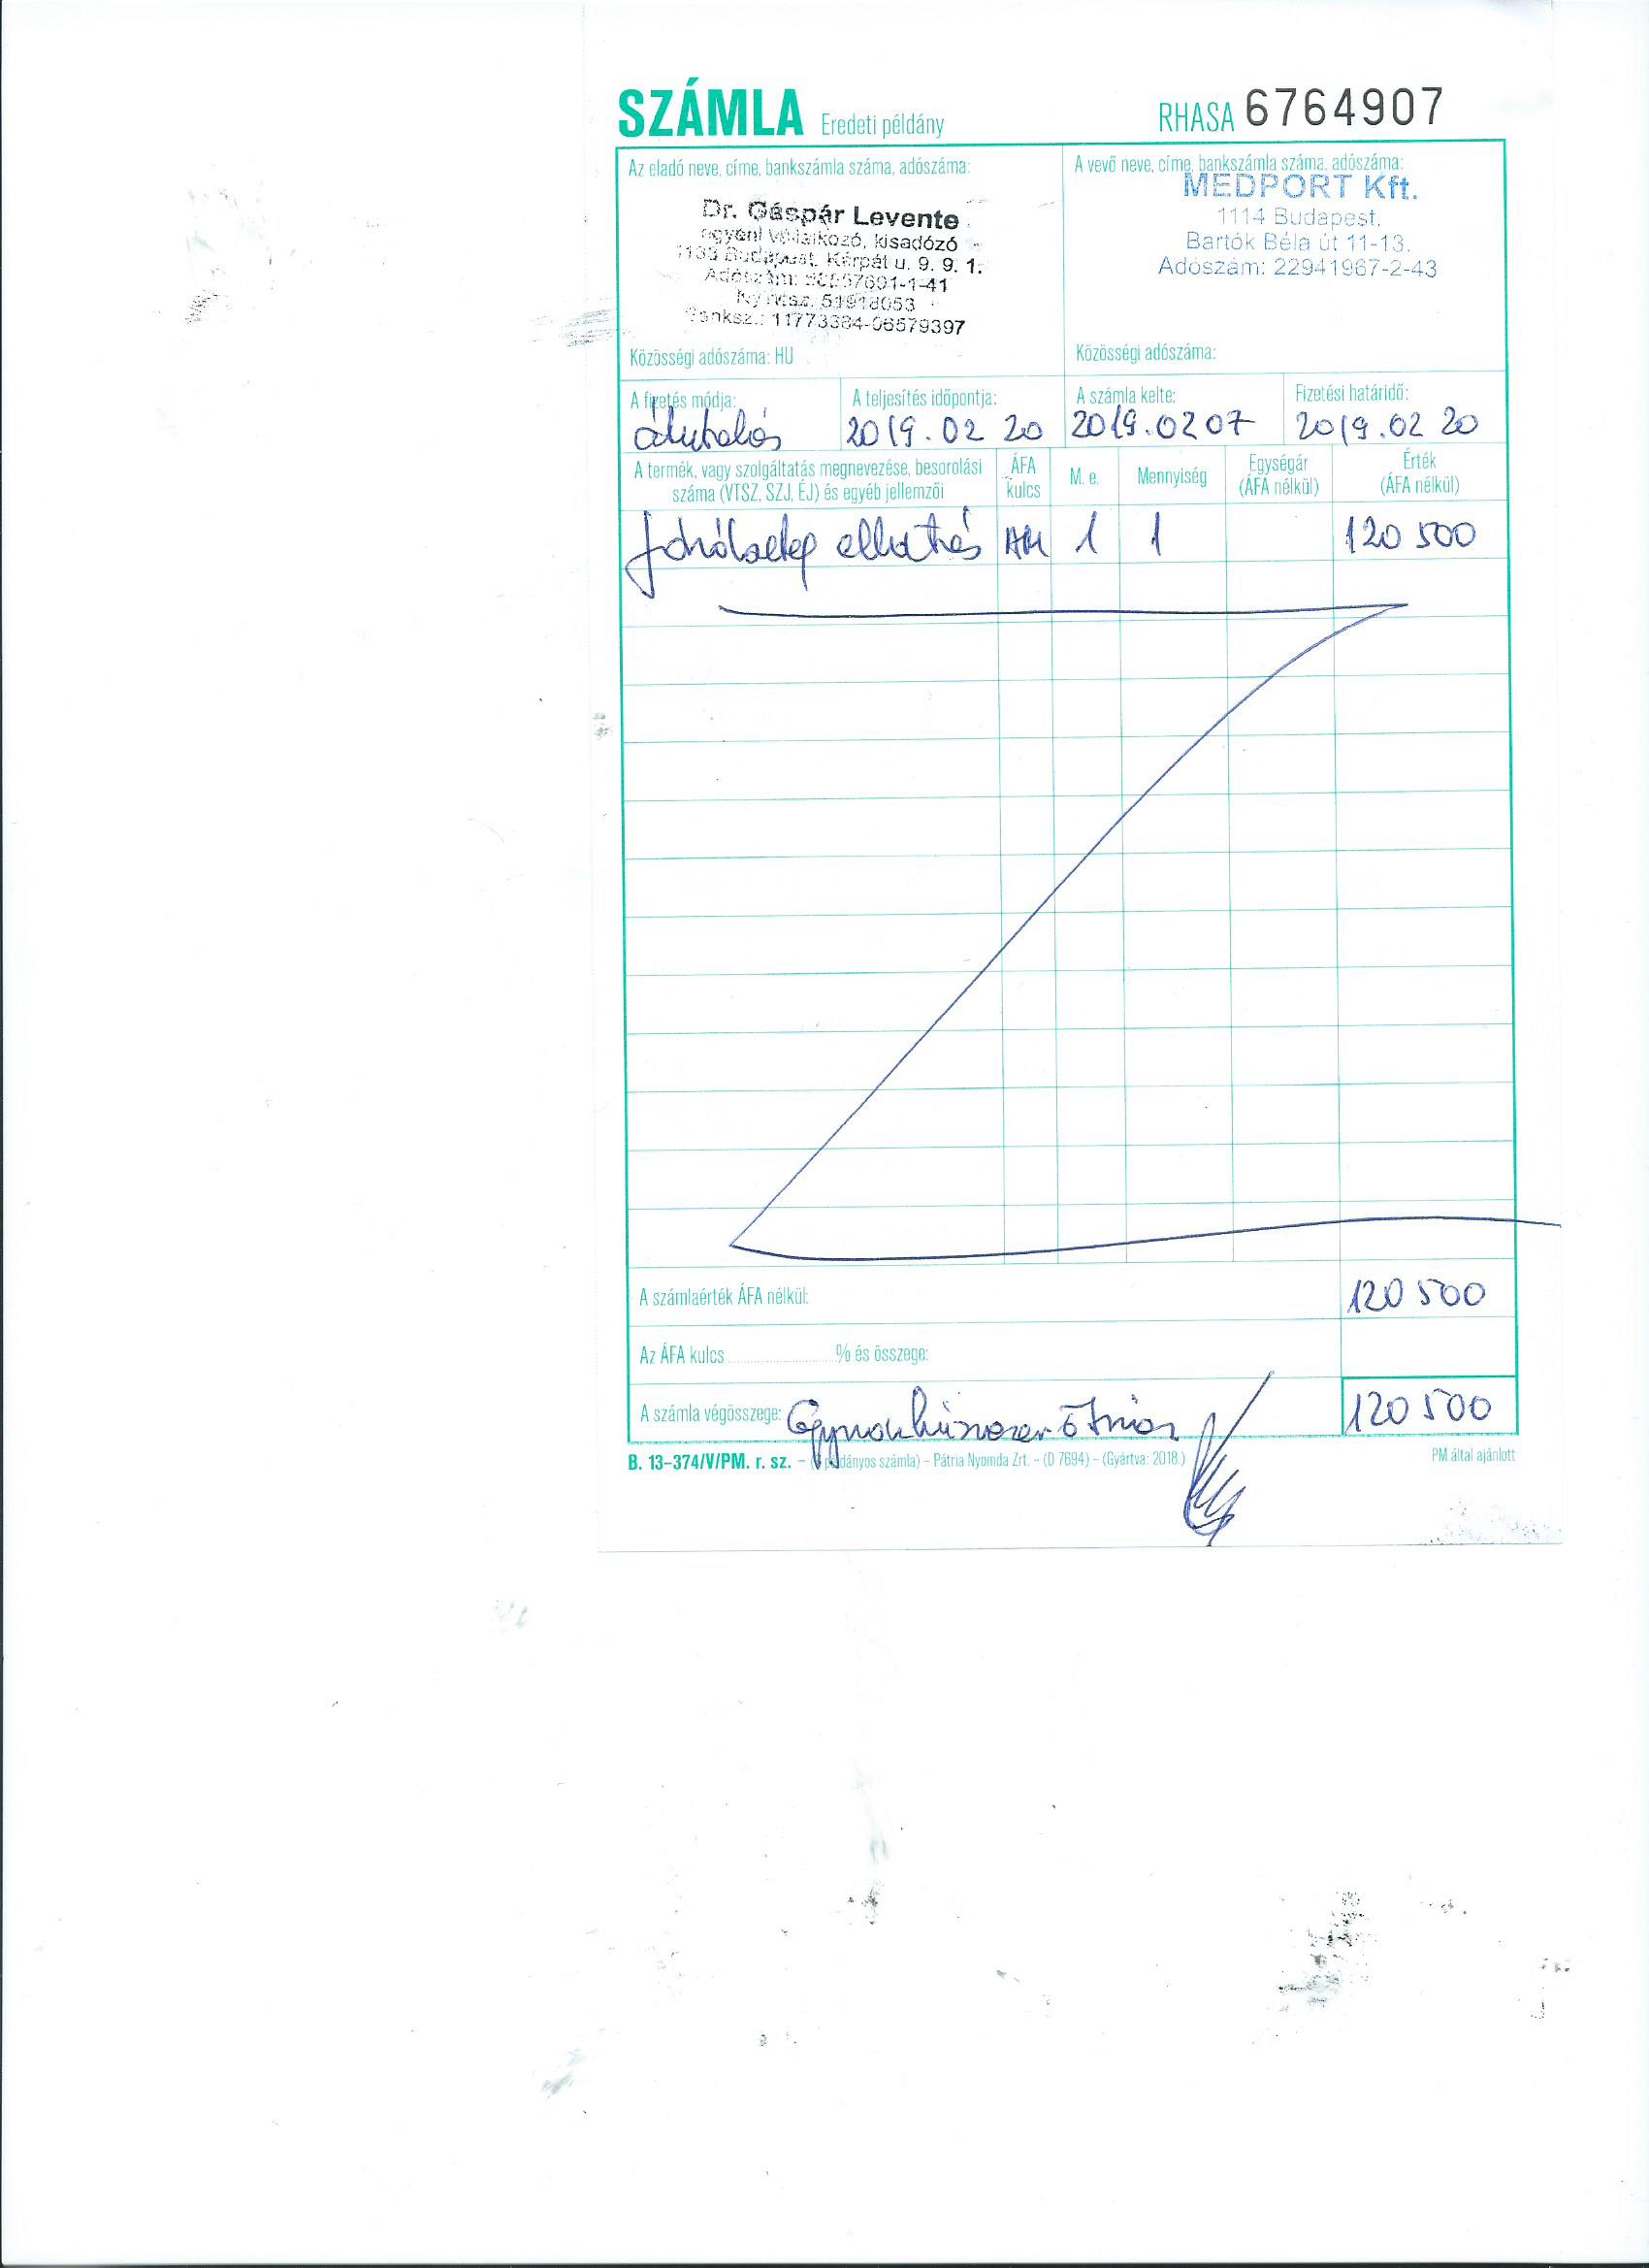 SZÁMLA Eredeti példány RHASA 6764907
Az eladó neve, címe, bankszámla száma, adószáma:
Dr. Gáspár Levente
egyéni vállalkozó, kisadózó
1133 Budapest, Kárpát u. 9. 9. 1.
Adószám:
51918053
Banksz.: 11773384-06579397
Közösségi adószáma: HU
A vevő neve, címe, bankszámla száma, adószáma:
MEDPORT Kft.
1114 Budapest,
Bartók Béla út 11-13.
Adószám: 22941967-2-43
Közösségi adószáma:
A fizetés módja: A teljesítés időpontja: A számla kelte: Fizetési határidő:
átutalás 2019.02 20 2019.02 07 2019.02 20
A termék, vagy szolgáltatás megnevezése, besorolási száma (VTSZ, SZJ, ÉJ) és egyéb jellemzői ÁFA kulcs M. e. Mennyiség Egységár (ÁFA nélkül) Érték (ÁFA nélkül)
ellátás 1 1 120 500
A számlaérték ÁFA nélkül: 120 500
Az ÁFA kulcs % és összege:
A számla végösszege: 120 500
B. 13-374/V/PM. r. sz. – dányos számla) – Pátria Nyomda Zrt. – (D 7694) – (Gyártva: 2018.) PM által ajánlott